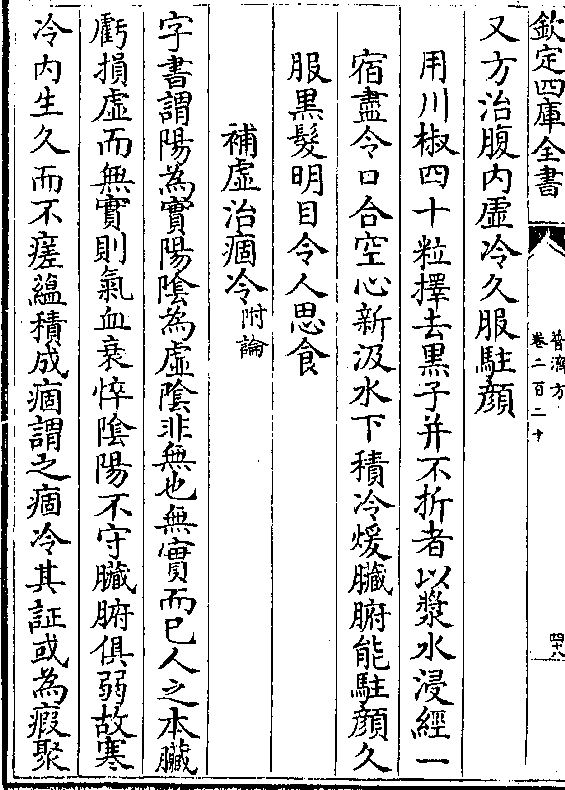 欽定四庫全書
普濟方
卷二百二十
四十八
又方治腹内虛冷久服駐顔
用川椒四十粒擇去黒子并不折者以漿水浸經一
宿盡令口合空心新汲水下積冷煖臟腑能駐顔久
服黒髮明目令人思食
補虛治痼冷附論
字書謂陽為實陽隂為虛隂非無也無實而已人之本臟
虧損虛而無實則氣血衰悴隂陽不守臟腑俱弱故寒
冷内生久而不瘥蘊積成痼謂之痼冷其証或為瘕聚